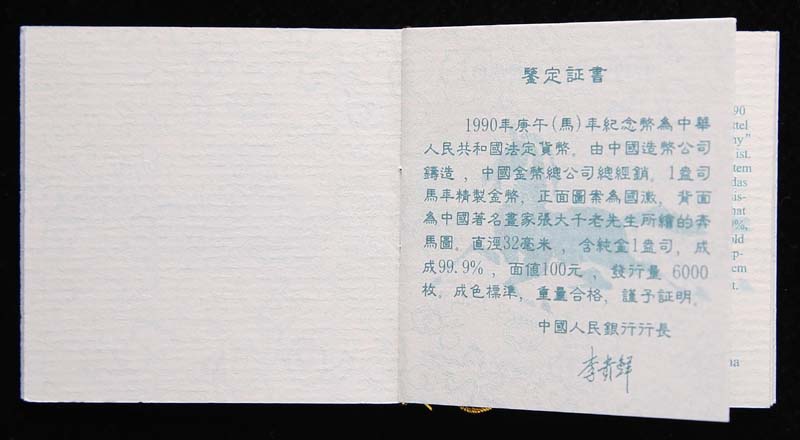 鑒定証書
1990年庚午(馬)年紀念幣為中華
人民共和國法定貨幣。由中國造幣公司
鑄造，中國金幣總公司總經銷。1盎司
馬年精製金幣，正面圖案為國徽，背面
為中國著名畫家張大千老先生所繪的奔
馬圖。直徑32毫米，含純金1盎司，成
成99.9%，面值100元，發行量6000
枚。成色標準，重量合格，謹予証明。
中國人民銀行行長
李貴鮮
90
ttel
ny"
ist.
tem
das
is-
hat
9%,
old
p-
em
t.
na